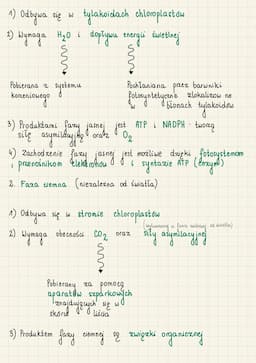 1) Odbywa się w tylakoidach chloroplastów
2) Wymaga H₂O i dopływu energii świetlnej
Pobierana z systemu korzeniowego
Pochłaniana przez barwniki fotosyntetyczne zlokalizow. na w błonach tylakoidów
3) Produktami fazy jasnej jest ATP i NADPH - tworzą
siłę asymilacyjną oraz O₂
4) Zachodzenie fazy jasnej jest możliwe dzięki fotosystemom
i przenośnikom elektronów i syntazie ATP (enzym)
2. Faza ciemna (niezależna od światła)
1) Odbywa się w stromie chloroplastów
2) Wymaga obecności CO₂ oraz siły asymilacyjnej
Pobierany za pomocą
aparatów szparkowych
znajdujących się w
skórce liścia
3) Produktem fazy ciemnej są związki organiczne